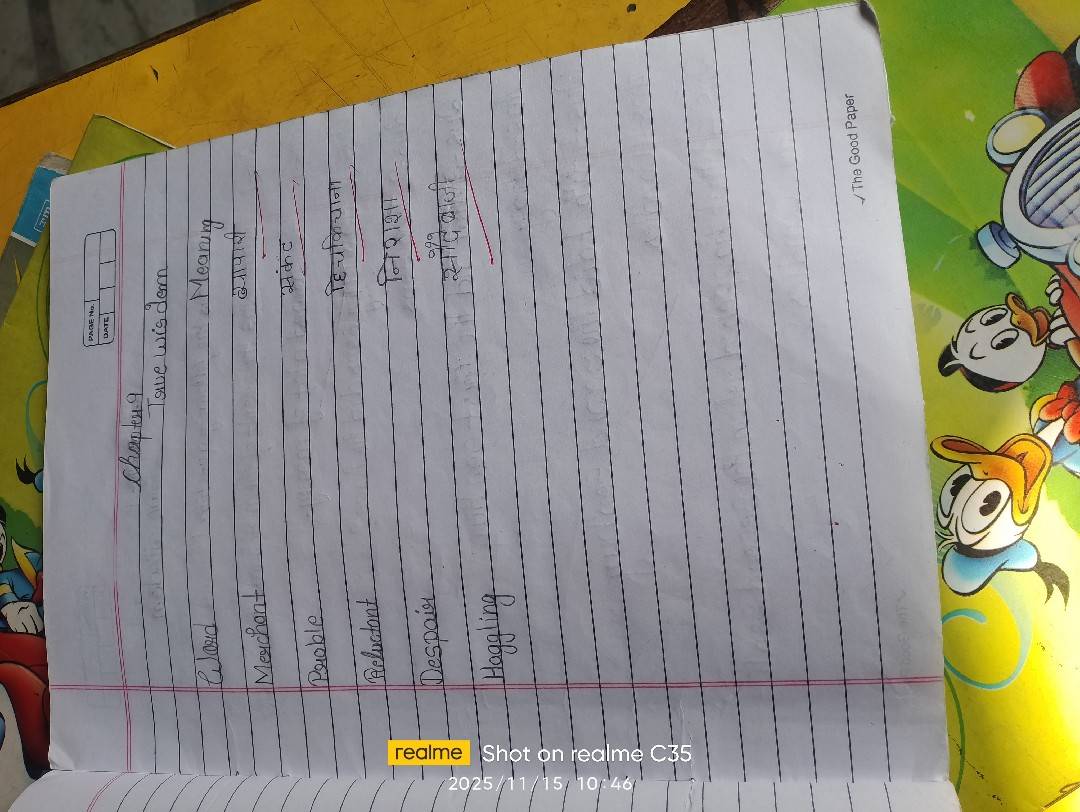 PAGE No.
DATE
Chapter 9
True wisdom
Word Meaning
Merchant व्यापारी
Peuble संकट
Reluctant हिचकिचाना
Despair निराशा
Haggling सौदेबाजी
✓ The Good Paper
realme Shot on realme C35
2025/11/15 10:46